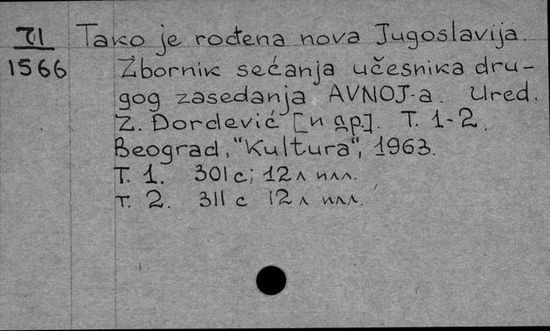 71 Tako je rođena nova Jugoslavija.
1566 Zbornik sećanja učesnika dru-
gog zasedanja AVNOJ-a. Ured.
Z. Đorđević [и др.]. T. 1-2.
Beograd, "Kultura", 1963.
T. 1. 301 с; 12 л илл.
T. 2. 311 с 12 л илл.